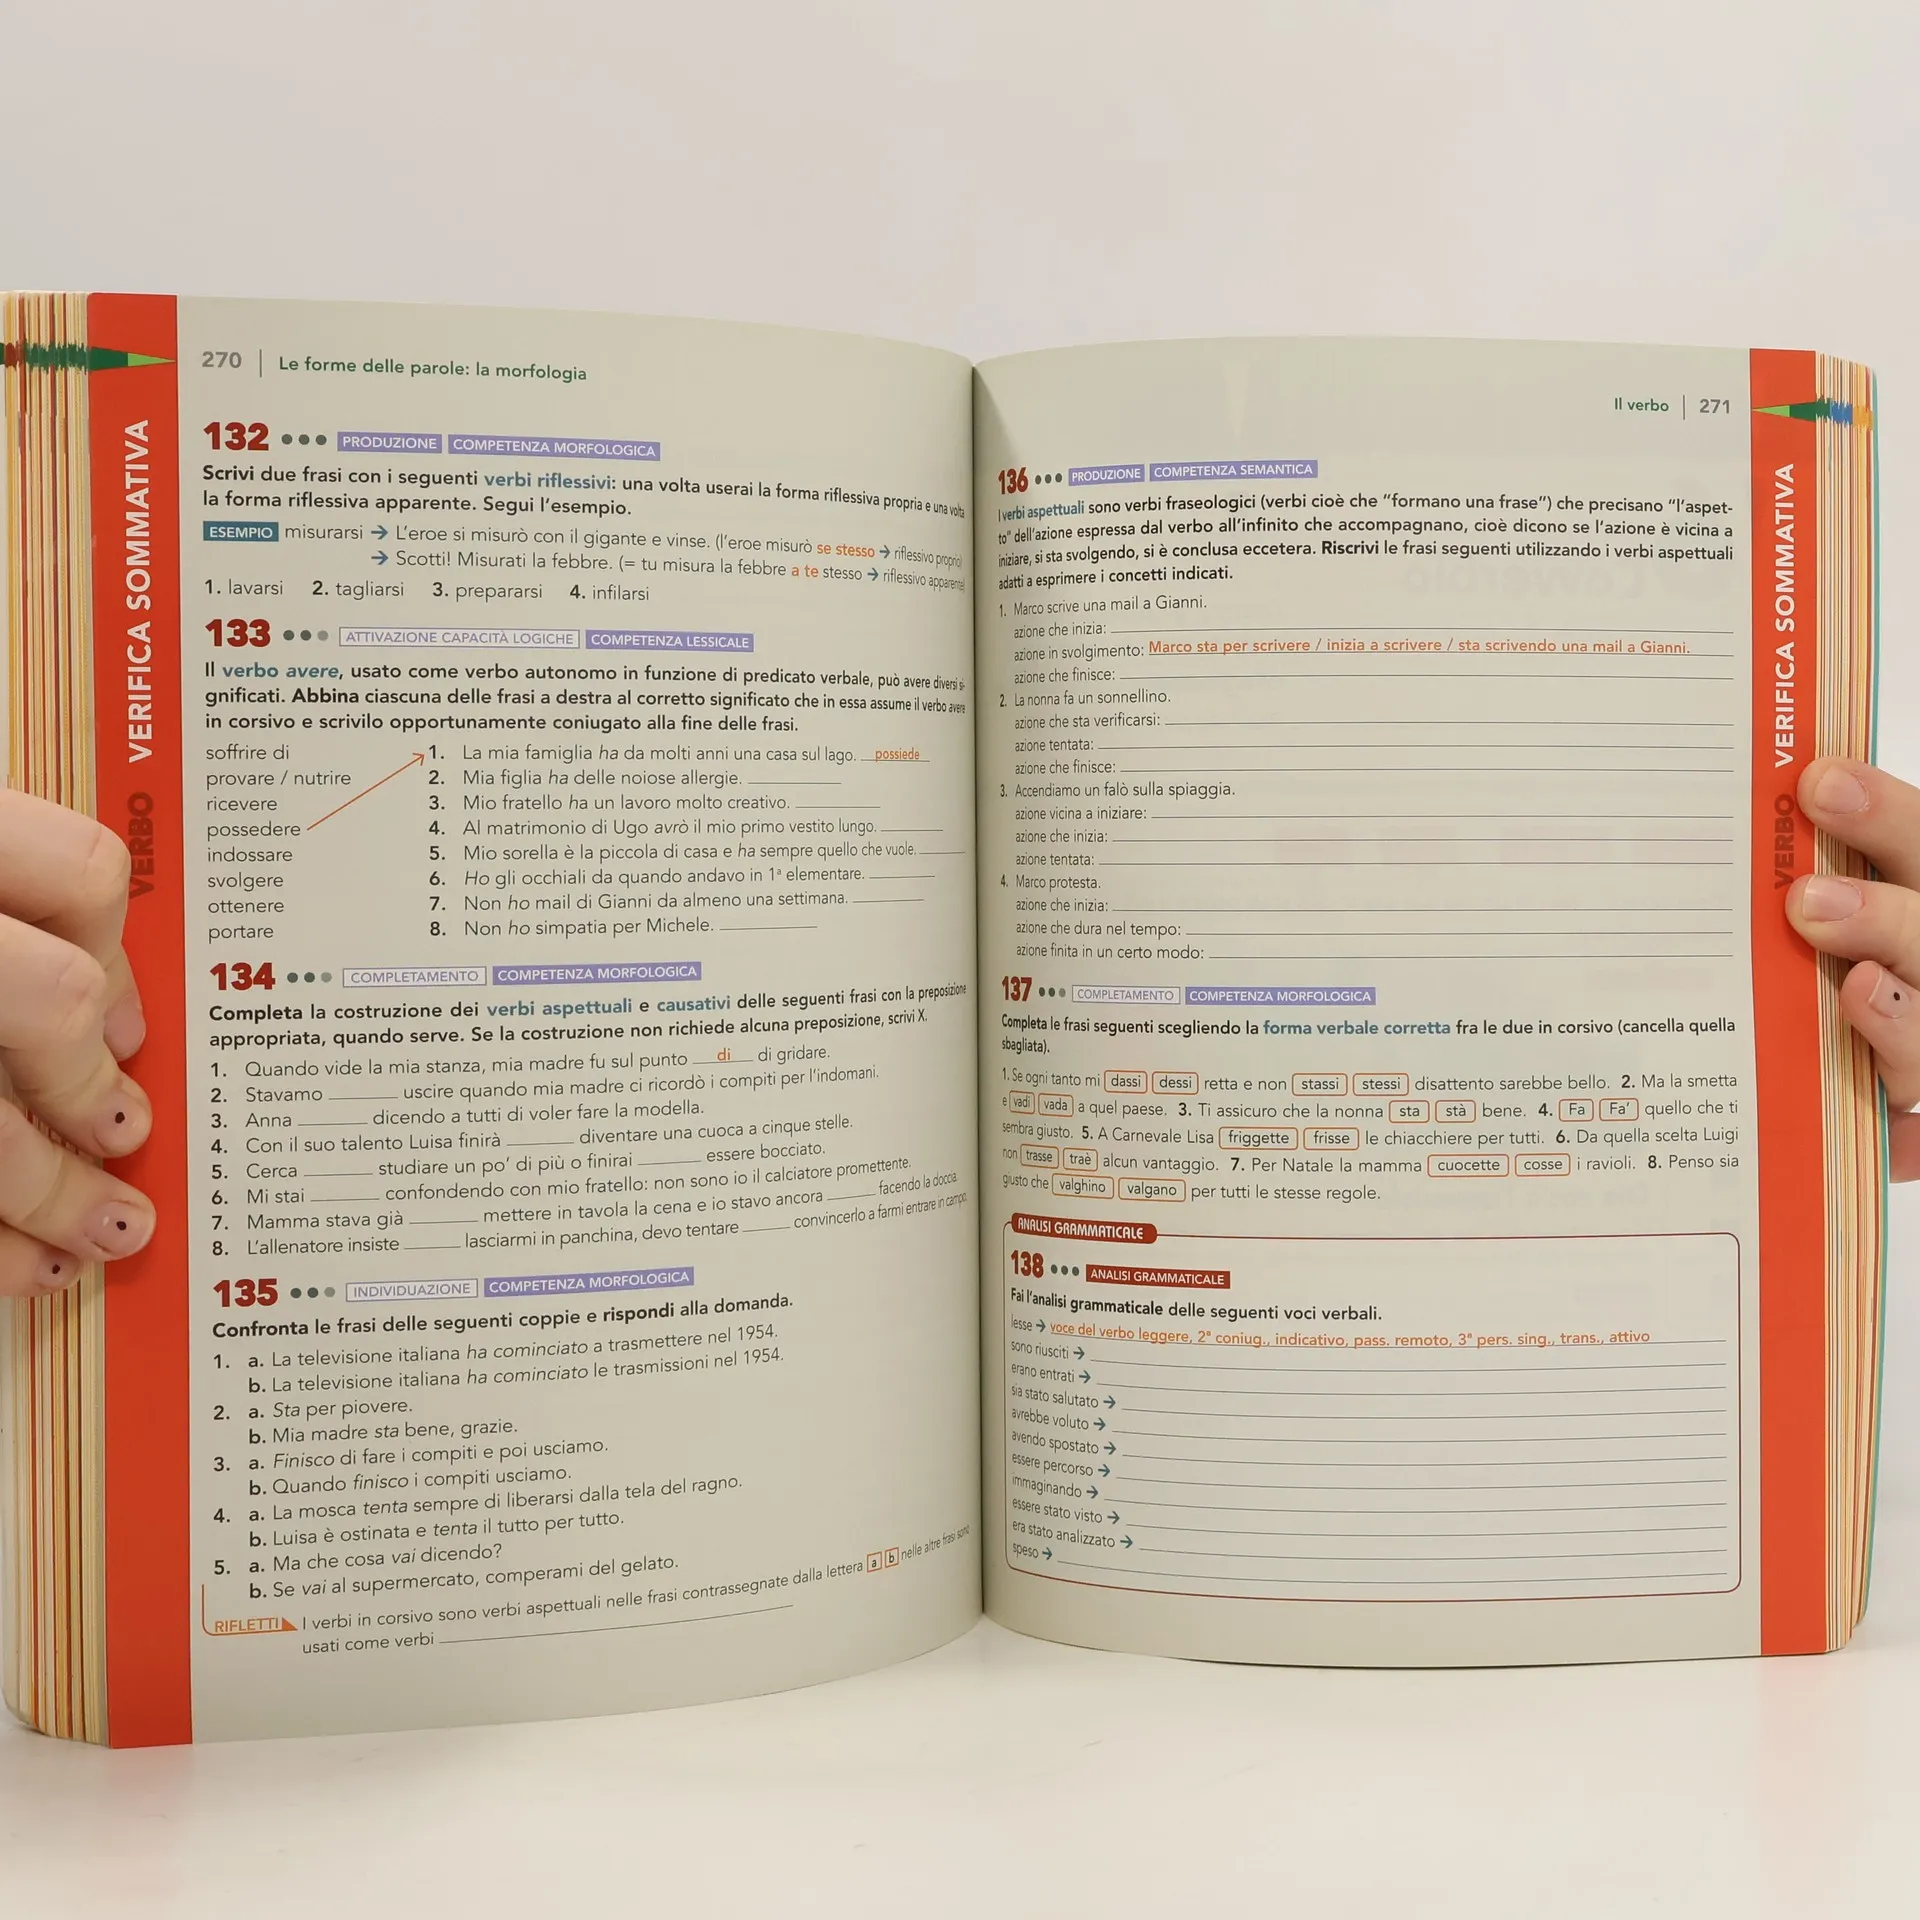 VERIFICA SOMMATIVA
VERBO
270 | Le forme delle parole: la morfologia
132 ●●● PRODUZIONE COMPETENZA MORFOLOGICA
Scrivi due frasi con i seguenti verbi riflessivi: una volta userai la forma riflessiva propria e una volta
la forma riflessiva apparente. Segui l'esempio.
ESEMPIO misurarsi → L'eroe si misurò con il gigante e vinse. (l'eroe misurò se stesso → riflessivo proprio)
→ Scotti! Misurati la febbre. (= tu misura la febbre a te stesso → riflessivo apparente)
1. lavarsi 2. tagliarsi 3. prepararsi 4. infilarsi
133 ●●● ATTIVAZIONE CAPACITÀ LOGICHE COMPETENZA LESSICALE
Il verbo avere, usato come verbo autonomo in funzione di predicato verbale, può avere diversi si-
gnificati. Abbina ciascuna delle frasi a destra al corretto significato che in essa assume il verbo avere
in corsivo e scrivilo opportunamente coniugato alla fine delle frasi.
soffrire di
provare / nutrire
ricevere
possedere
indossare
svolgere
ottenere
portare
1. La mia famiglia ha da molti anni una casa sul lago. possiede
2. Mia figlia ha delle noiose allergie. ________
3. Mio fratello ha un lavoro molto creativo. ________
4. Al matrimonio di Ugo avrò il mio primo vestito lungo. ________
5. Mio sorella è la piccola di casa e ha sempre quello che vuole. ________
6. Ho gli occhiali da quando andavo in 1ª elementare. ________
7. Non ho mail di Gianni da almeno una settimana. ________
8. Non ho simpatia per Michele. ________
134 ●●● COMPLETAMENTO COMPETENZA MORFOLOGICA
Completa la costruzione dei verbi aspettuali e causativi delle seguenti frasi con la preposizione
appropriata, quando serve. Se la costruzione non richiede alcuna preposizione, scrivi X.
1. Quando vide la mia stanza, mia madre fu sul punto di di gridare.
2. Stavamo ________ uscire quando mia madre ci ricordò i compiti per l'indomani.
3. Anna ________ dicendo a tutti di voler fare la modella.
4. Con il suo talento Luisa finirà ________ diventare una cuoca a cinque stelle.
5. Cerca ________ studiare un po' di più o finirai ________ essere bocciato.
6. Mi stai ________ confondendo con mio fratello: non sono io il calciatore promettente.
7. Mamma stava già ________ mettere in tavola la cena e io stavo ancora ________ facendo la doccia.
8. L'allenatore insiste ________ lasciarmi in panchina, devo tentare ________ convincerlo a farmi entrare in campo.
135 ●●● INDIVIDUAZIONE COMPETENZA MORFOLOGICA
Confronta le frasi delle seguenti coppie e rispondi alla domanda.
1. a. La televisione italiana ha cominciato a trasmettere nel 1954.
b. La televisione italiana ha cominciato le trasmissioni nel 1954.
2. a. Sta per piovere.
b. Mia madre sta bene, grazie.
3. a. Finisco di fare i compiti e poi usciamo.
b. Quando finisco i compiti usciamo.
4. a. La mosca tenta sempre di liberarsi dalla tela del ragno.
b. Luisa è ostinata e tenta il tutto per tutto.
5. a. Ma che cosa vai dicendo?
b. Se vai al supermercato, comperami del gelato.
RIFLETTI I verbi in corsivo sono verbi aspettuali nelle frasi contrassegnate dalla lettera a b nelle altre frasi sono
usati come verbi ________
Il verbo | 271
136 ●●● PRODUZIONE COMPETENZA SEMANTICA
I verbi aspettuali sono verbi fraseologici (verbi cioè che "formano una frase") che precisano "l'aspet-
to" dell'azione espressa dal verbo all'infinito che accompagnano, cioè dicono se l'azione è vicina a
iniziare, si sta svolgendo, si è conclusa eccetera. Riscrivi le frasi seguenti utilizzando i verbi aspettuali
adatti a esprimere i concetti indicati.
1. Marco scrive una mail a Gianni.
azione che inizia: ________
azione in svolgimento: Marco sta per scrivere / inizia a scrivere / sta scrivendo una mail a Gianni.
azione che finisce: ________
2. La nonna fa un sonnellino.
azione che sta verificarsi: ________
azione tentata: ________
azione che finisce: ________
3. Accendiamo un falò sulla spiaggia.
azione vicina a iniziare: ________
azione che inizia: ________
azione tentata: ________
4. Marco protesta.
azione che inizia: ________
azione che dura nel tempo: ________
azione finita in un certo modo: ________
137 ●●● COMPLETAMENTO COMPETENZA MORFOLOGICA
Completa le frasi seguenti scegliendo la forma verbale corretta fra le due in corsivo (cancella quella
sbagliata).
1. Se ogni tanto mi dassi dessi retta e non stassi stessi disattento sarebbe bello. 2. Ma la smetta
e vadi vada a quel paese. 3. Ti assicuro che la nonna sta stà bene. 4. Fa Fa' quello che ti
sembra giusto. 5. A Carnevale Lisa friggette frisse le chiacchiere per tutti. 6. Da quella scelta Luigi
non trasse traè alcun vantaggio. 7. Per Natale la mamma cuocette cosse i ravioli. 8. Penso sia
giusto che valghino valgano per tutti le stesse regole.
ANALISI GRAMMATICALE
138 ●●● ANALISI GRAMMATICALE
Fai l'analisi grammaticale delle seguenti voci verbali.
lesse → voce del verbo leggere, 2ª coniug., indicativo, pass. remoto, 3ª pers. sing., trans., attivo
sono riusciti → ________
erano entrati → ________
sia stato salutato → ________
avrebbe voluto → ________
avendo spostato → ________
essere percorso → ________
immaginando → ________
essere stato visto → ________
era stato analizzato → ________
speso → ________
VERIFICA SOMMATIVA
VERBO